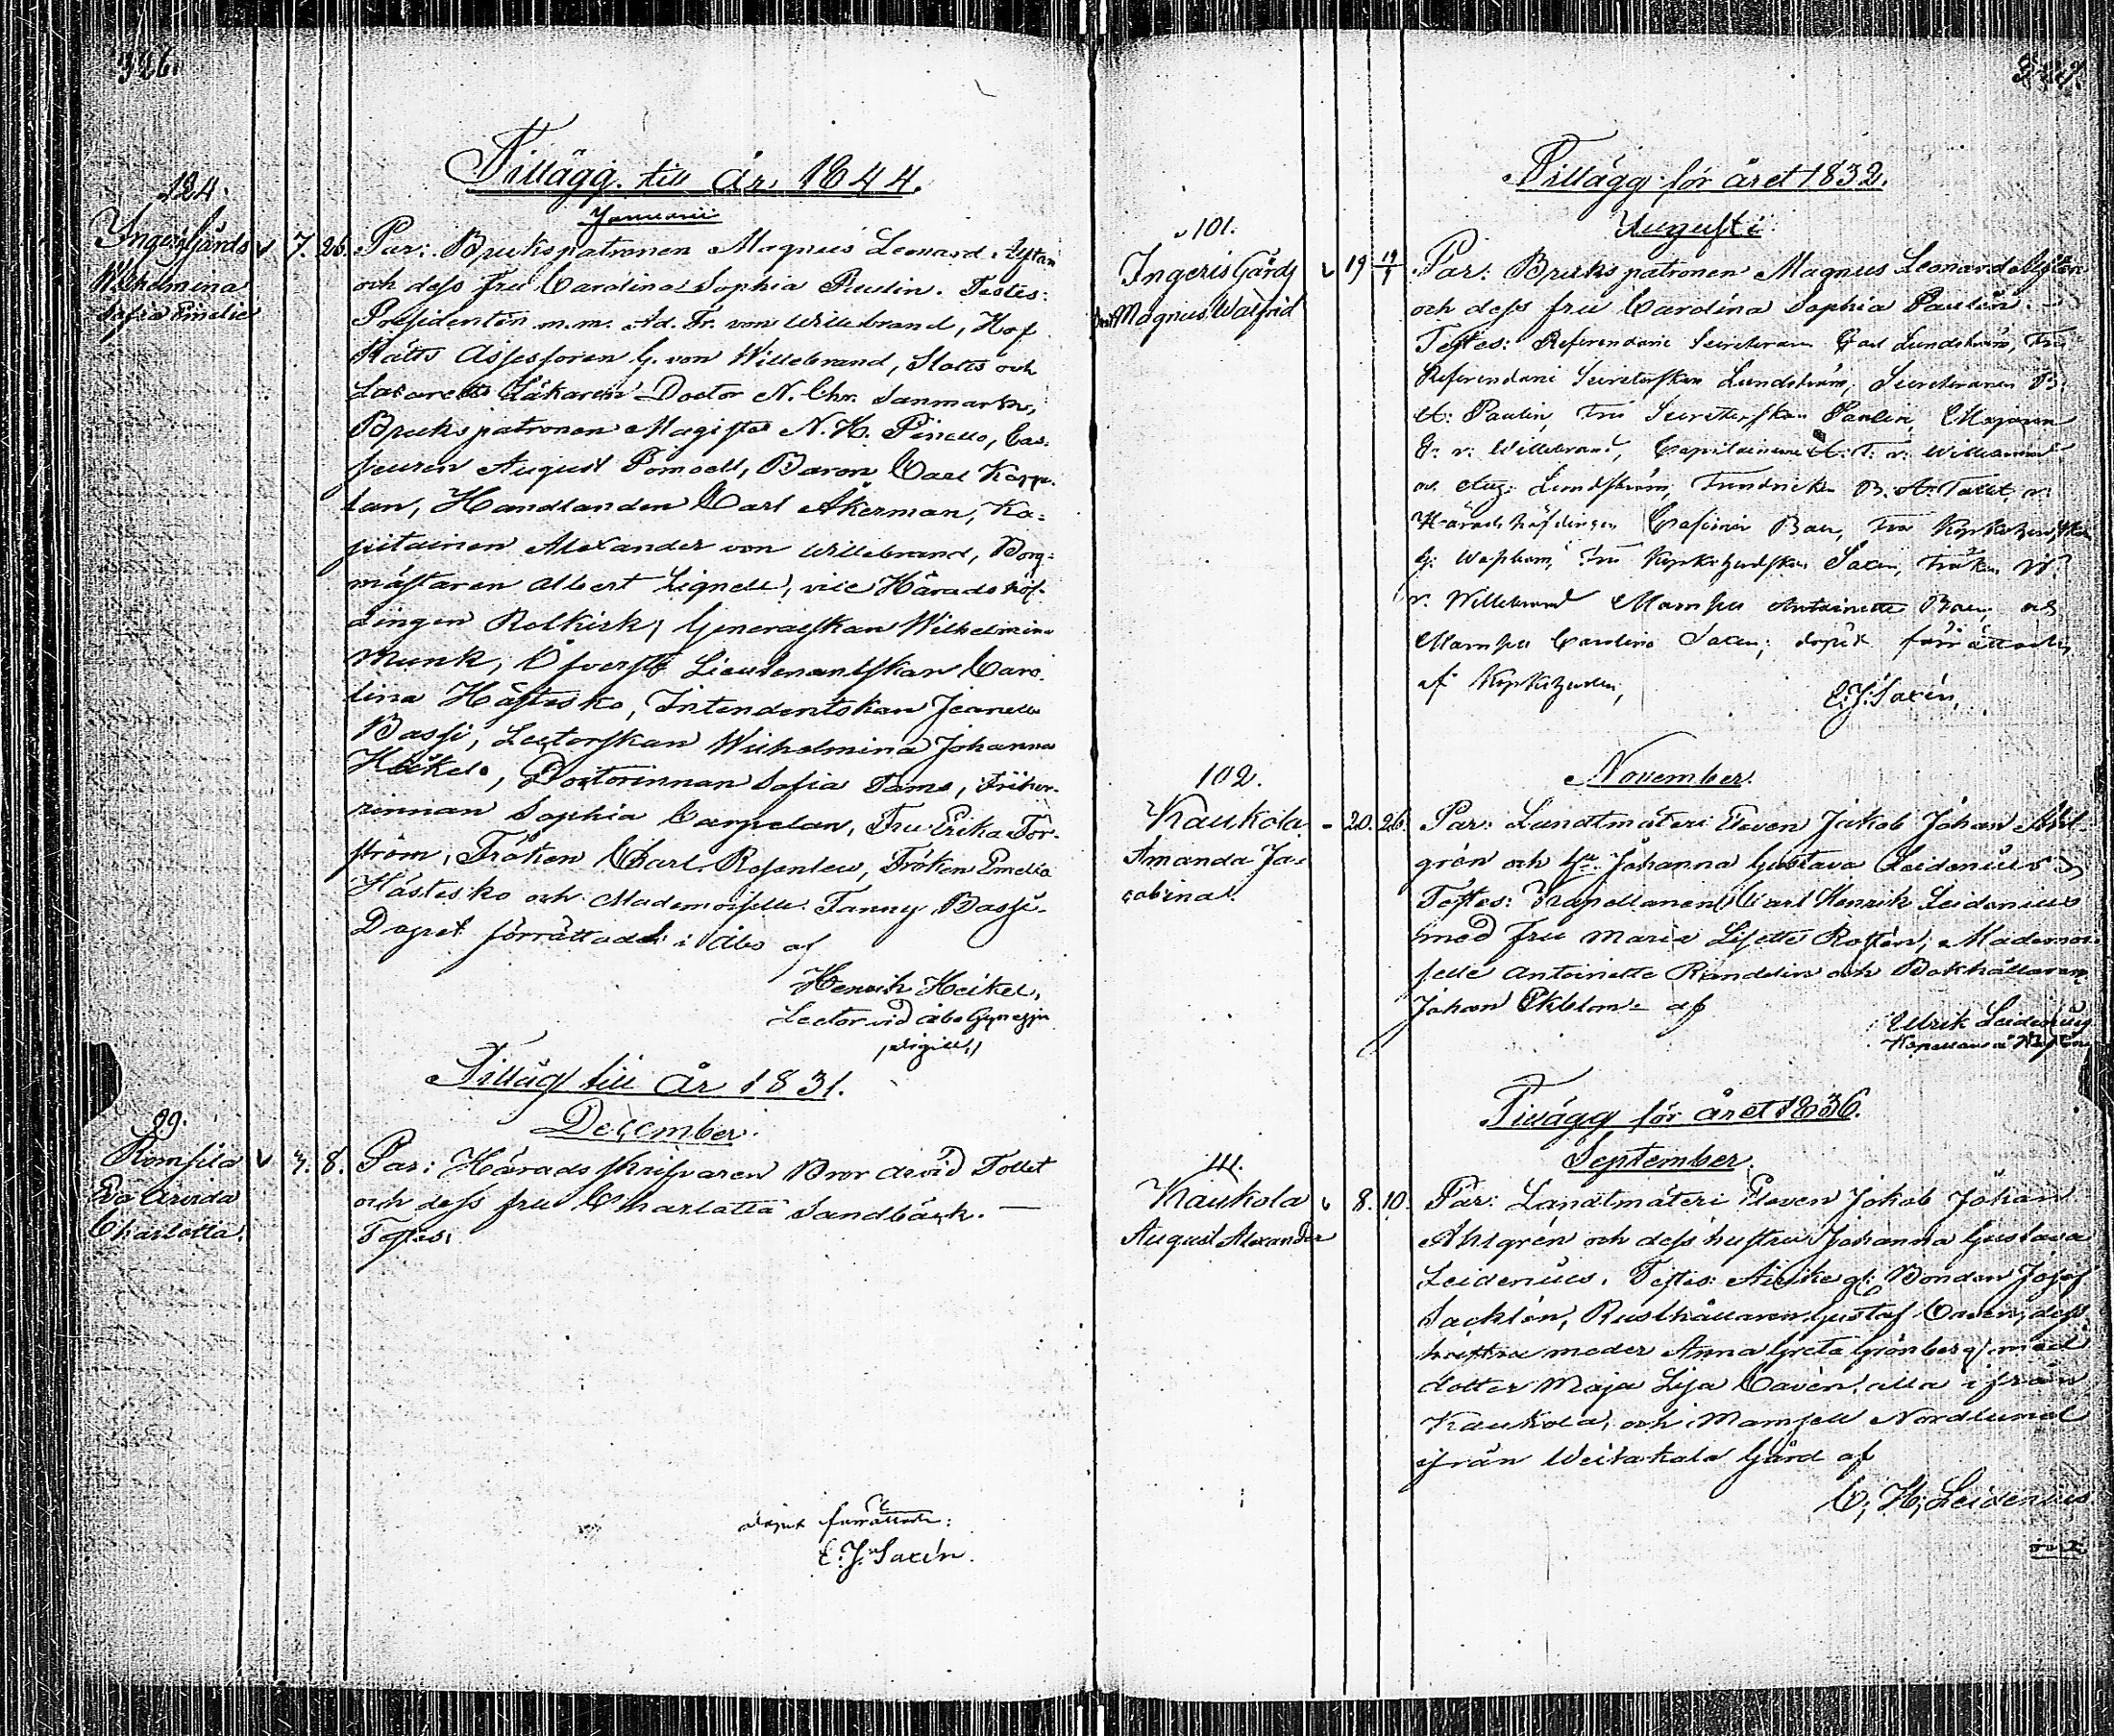 326.
Tillägg. till År 1844.
Januarii
124.
Ingeris Gårds
Wilhelmina
Sofia Emelie
7. 26. Par: Brukspatronen Magnus Leonard
och dess fru Carolina Sophia Paulin. Testes:
Presidenten m.m. Ad. Fr. von Willebrand, Hof
Rätts Assessoren G. von Willebrand, Slotts och
Lazaretts Läkaren Doctor N. Chr. Sanmark,
Brukspatronen Magister N. H. Pinello, Cas-
seuren August Tömoell, Baron Carl
lan, Handlanden Carl Åkerman, Ka-
pitainen Alexander von Willebrand, Borg-
mästaren Albert Lignell, vice Häradshöf-
dingen Rotkirk, Generalskan Wilhelmina
Munk, Öfverste Lieutenantskan Caro-
lina Hästesko, Intendentskan Jeanette
Bassi, Lectorskan Wilhelmina Johanna
Heikel, Doctorinnan Sofia Tams, Friher-
rinnan Sophia Carpelan, Fru Erika Tör-
ström, Fröken Charl. Rosenlew, Fröken Emelie
Hästesko och Mademoiselle Fanny Bassi-
Dopet förrättades i Åbo af
Henrik Heikel,
Lector vid Åbo
Tilläg till År 1831.
December.
99.
Romsila
Eva Arvida
Charlotta.
3. 8. Par: Häradsskrifvaren Bror Arvid Tollet
och dess fru Charlotta Sandbäck. —
Testes:
dopet förrättade:
E. J. Saxén.
327.
Tillägg för året 1832.
Augusti
101.
Ingeris Gårds
Magnus Walfrid
19 19 Par: Brukspatronen Magnus Leonard
och dess fru Carolina Sophia Paulin.
Testes: Referendarie Secreteraren Carl Lundström, Fru
Referendarie Secreterskan Lundström, Secreteraren
A: Paulin, Fru Secreterskan Paulin, Majoren
G. v: Willebrand, Capitainerne A. F. v: Willebrand
o. Aug: Lundström, B. A. Tollet,
Häradshöfdingen Casimir Baer, Fru
Fru Kyrkoherdskan Saxén, Fröken W.
v. Willebrand Mamsell Antoinette Baer, och
Mamsell Carolina Saxén; dopet förrättades
af Kyrkoherden,
E. J. Saxén,
November.
102.
Kaukola
Amanda Ja-
cobina
- 20. 26. Par: Landtmäteri Eleven Jakob Johan Ahl-
grén och Hu Johanna Gustava Leidenius
Testes: Kapellanen Carl Henrik Leidenius
med fru Maria Lisette Rostén, Mademoi-
selle Antoinette Randelin och Bokhållaren
Johan Ekblom - af
Ulrik Leidenius
Tillägg för året 1836.
September.
111.
Kaukola
August Alexander
8. 10. Par: Landtmäteri Eleven Jakob Johan
Ahlgrén och dess hustru Johanna Gustava
Leidenius. Testes: Bonden Josef
Sacklén, Rusthållaren Gustaf Cavén, dess
hustru moder Anna Greta Grönberg med
dotter Maja Lisa Cavén, alla ifrån
Kaukola, och Mamsell Nordlund
ifrån Weitakala Gård af
C. H. Leidenius